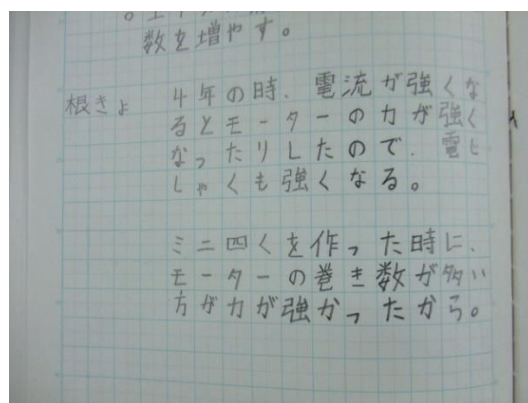 数を増やす。
根きょ 4年の時、電流が強くな
るとモーターの力が強く
なったりしたので、電じ
しゃくも強くなる。
ミニ四くを作った時に、
モーターの巻き数が多い
方が力が強かったから。